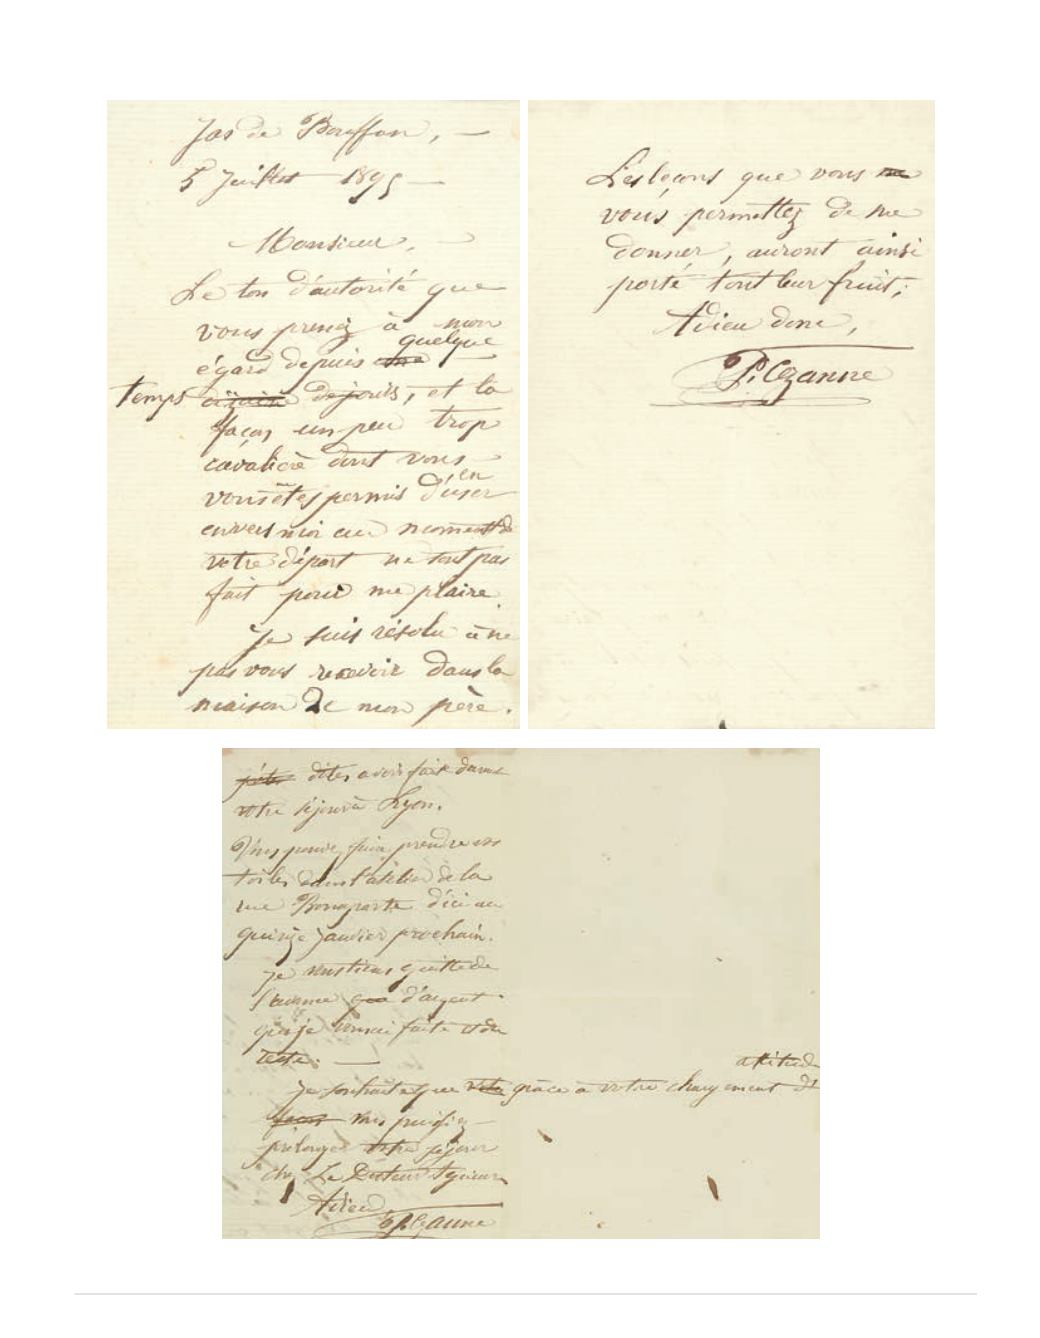 Jas de Bouffan, —
5 Juillet 1895 —
Monsieur, —
Le ton d'autorité que
vous prenez à mon
quelque
égard depuis une
temps depuis, et la
façon un peu trop
cavalière dont vous
en
vous êtes permis d'user
envers moi au moment de
votre départ ne sont pas
fait pour me plaire.
Je suis résolu à ne
pas vous recevoir dans la
maison de mon père.
Les leçons que vous me
vous permettez de me
donner, auront ainsi
porté tout leur fruit;
Adieu donc,
P. Cezanne
dites avoir fait dans
votre séjour à Lyon.
Vous pouvez faire prendre vos
toiles dans l'atelier de la
rue Bonaparte d'ici au
quinze Janvier prochain.
Je vous tiens quitte de
l'avance que d'argent
que je vous ai faite et du
reste. —
attitude
Je souhaite que votre grâce à votre changement de
façons vous puissiez
prolonger votre séjour
chez Le Docteur
Adieu
P. Cezanne